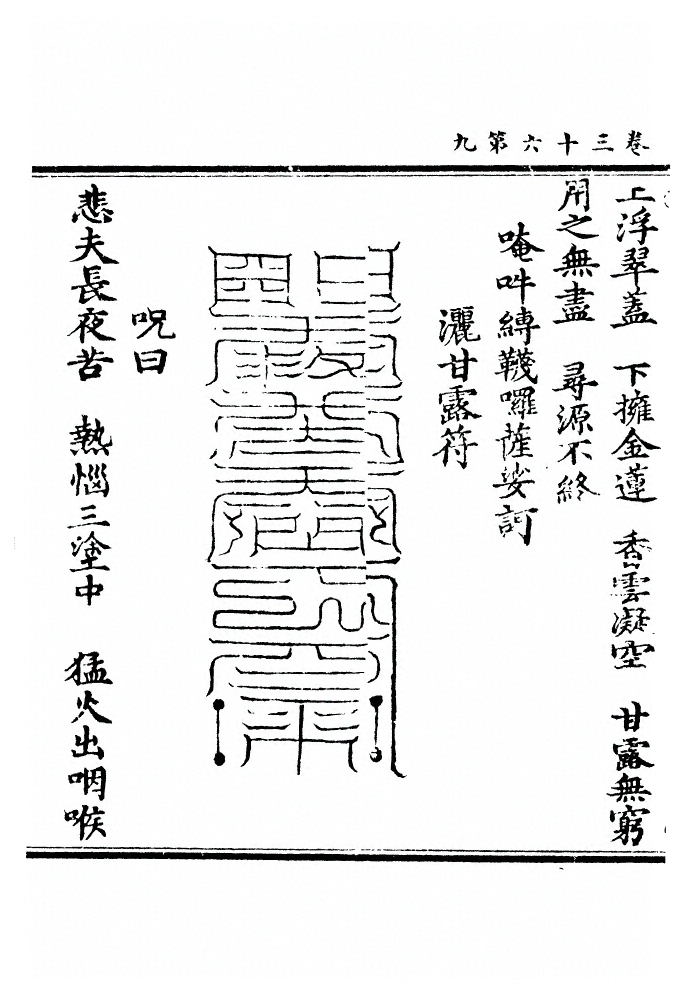 卷三十六第九
上浮翠蓋　下擁金蓮　香雲凝空　甘露無窮
用之無盡　尋源不終
唵吽縛韈囉薩娑訶
灑甘露符
呪曰
悲夫長夜苦　熱惱三塗中　猛火出咽喉